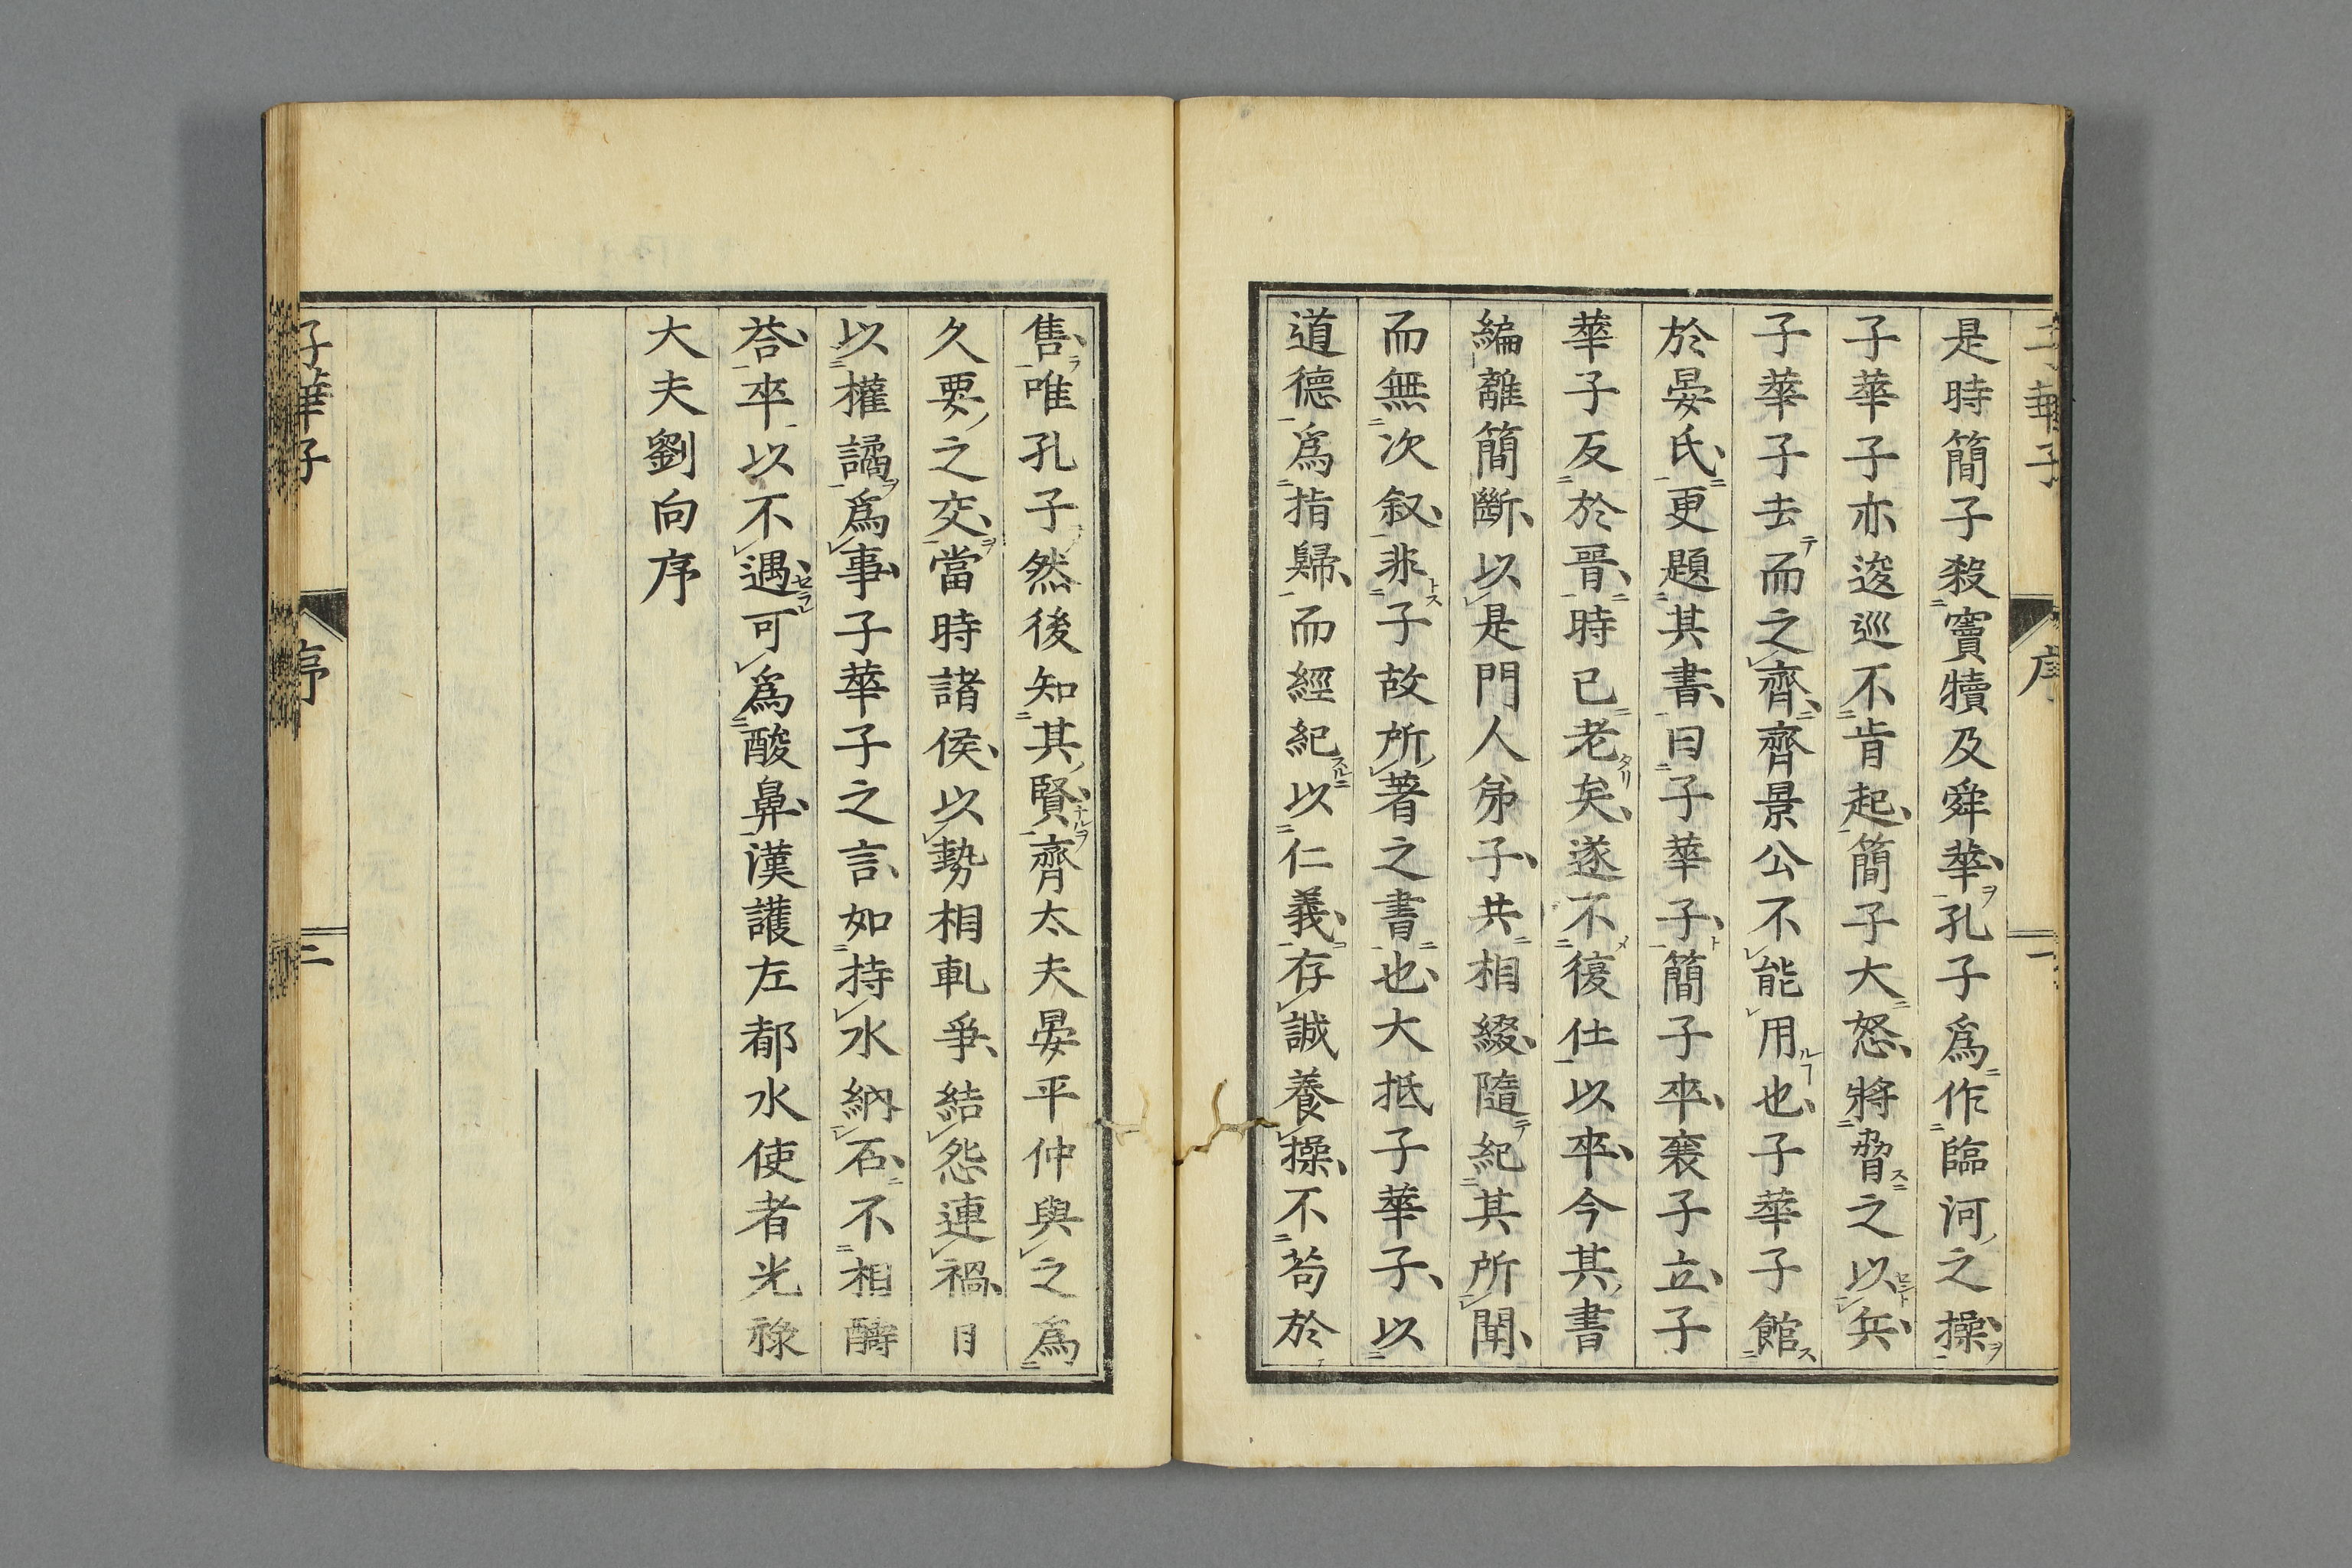 是時簡子殺竇犢及舜華孔子爲作臨河之操
子華子亦逡巡不肯起簡子大怒將脅之以兵
子華子去而之齊齊景公不能用也子華子館
於晏氏更題其書曰子華子簡子卒襄子立子
華子反於晉時已老矣遂不復仕以卒今其書
編離簡斷以是門人弟子共相綴隨紀其所聞
而無次叙非子故所著之書也大抵子華子以
道德爲指歸而經紀以仁義存誠養操不苟於
售唯孔子然後知其賢齊太夫晏平仲與之爲
久要之交當時諸侯以勢相軋爭結怨連禍日
以權譎爲事子華子之言如持水納石不相酧
荅卒以不遇可爲酸鼻漢護左都水使者光祿
大夫劉向序
子華子
序
二